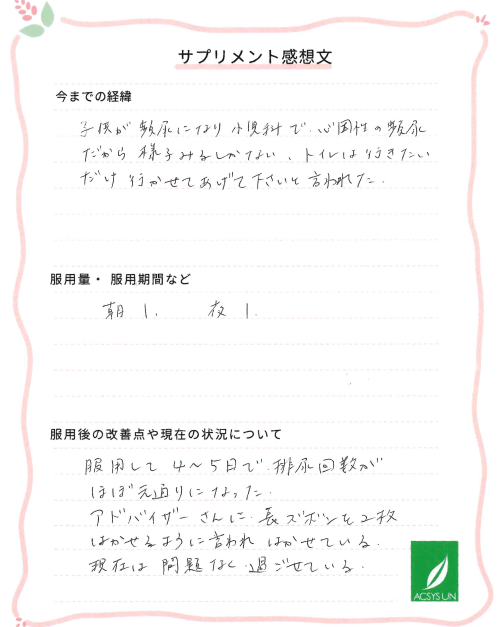 サプリメント感想文
今までの経緯
子供が頻尿になり小児科で、心因性の頻尿
だから様子みるしかない、トイレは行きたい
だけ行かせてあげて下さいと言われた。
服用量・服用期間など
朝 1. 夜 1.
服用後の改善点や現在の状況について
服用して 4〜5日で、排尿回数が
ほぼ元通りになった。
アドバイザーさんに、長ズボンを2枚
はかせるように言われ はかせている。
現在は 問題なく 過ごせている。
ACSYSUN